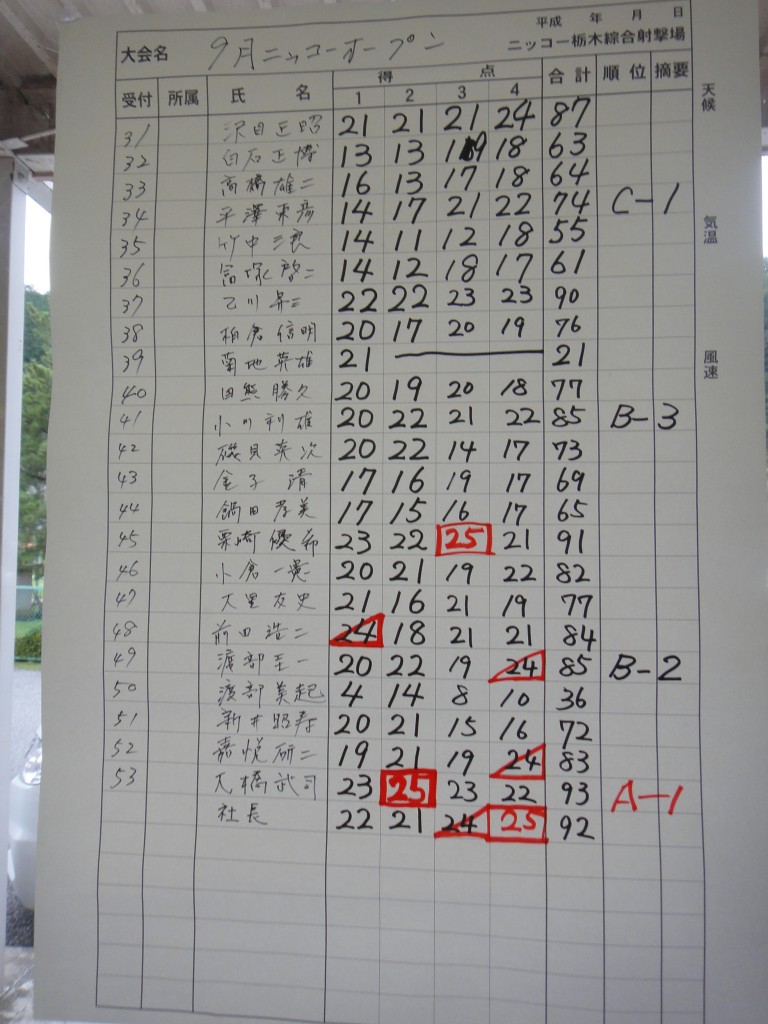 平成 年 月 日
大会名 9月ニッコーオープン ニッコー栃木綜合射撃場
受付 所属 氏 名 得 点 合計 順位 摘要
1 2 3 4
天候
気温
風速
31 沢田正昭 21 21 21 24 87
32 白石正博 13 13 19 18 63
33 高橋雄二 16 13 17 18 64
34 平澤東彦 14 17 21 22 74 C-1
35 竹中三良 14 11 12 18 55
36 冨塚啓二 14 12 18 17 61
37 乙川昇三 22 22 23 23 90
38 柏倉信明 20 17 20 19 76
39 菊地英雄 21 21
40 田熊勝久 20 19 20 18 77
41 小川利雄 20 22 21 22 85 B-3
42 磯貝英次 20 22 14 17 73
43 金子 清 17 16 19 17 69
44 鍋田孝美 17 15 16 17 65
45 栗崎優希 23 22 25 21 91
46 小倉一憲 20 21 19 22 82
47 大里友史 21 16 21 19 77
48 前田浩二 24 18 21 21 84
49 渡部圭一 20 22 19 24 85 B-2
50 渡部美起 4 14 8 10 36
51 新井昭寿 20 21 15 16 72
52 嘉悦研二 19 21 19 24 83
53 大橋武司 23 25 23 22 93 A-1
社長 22 21 24 25 92